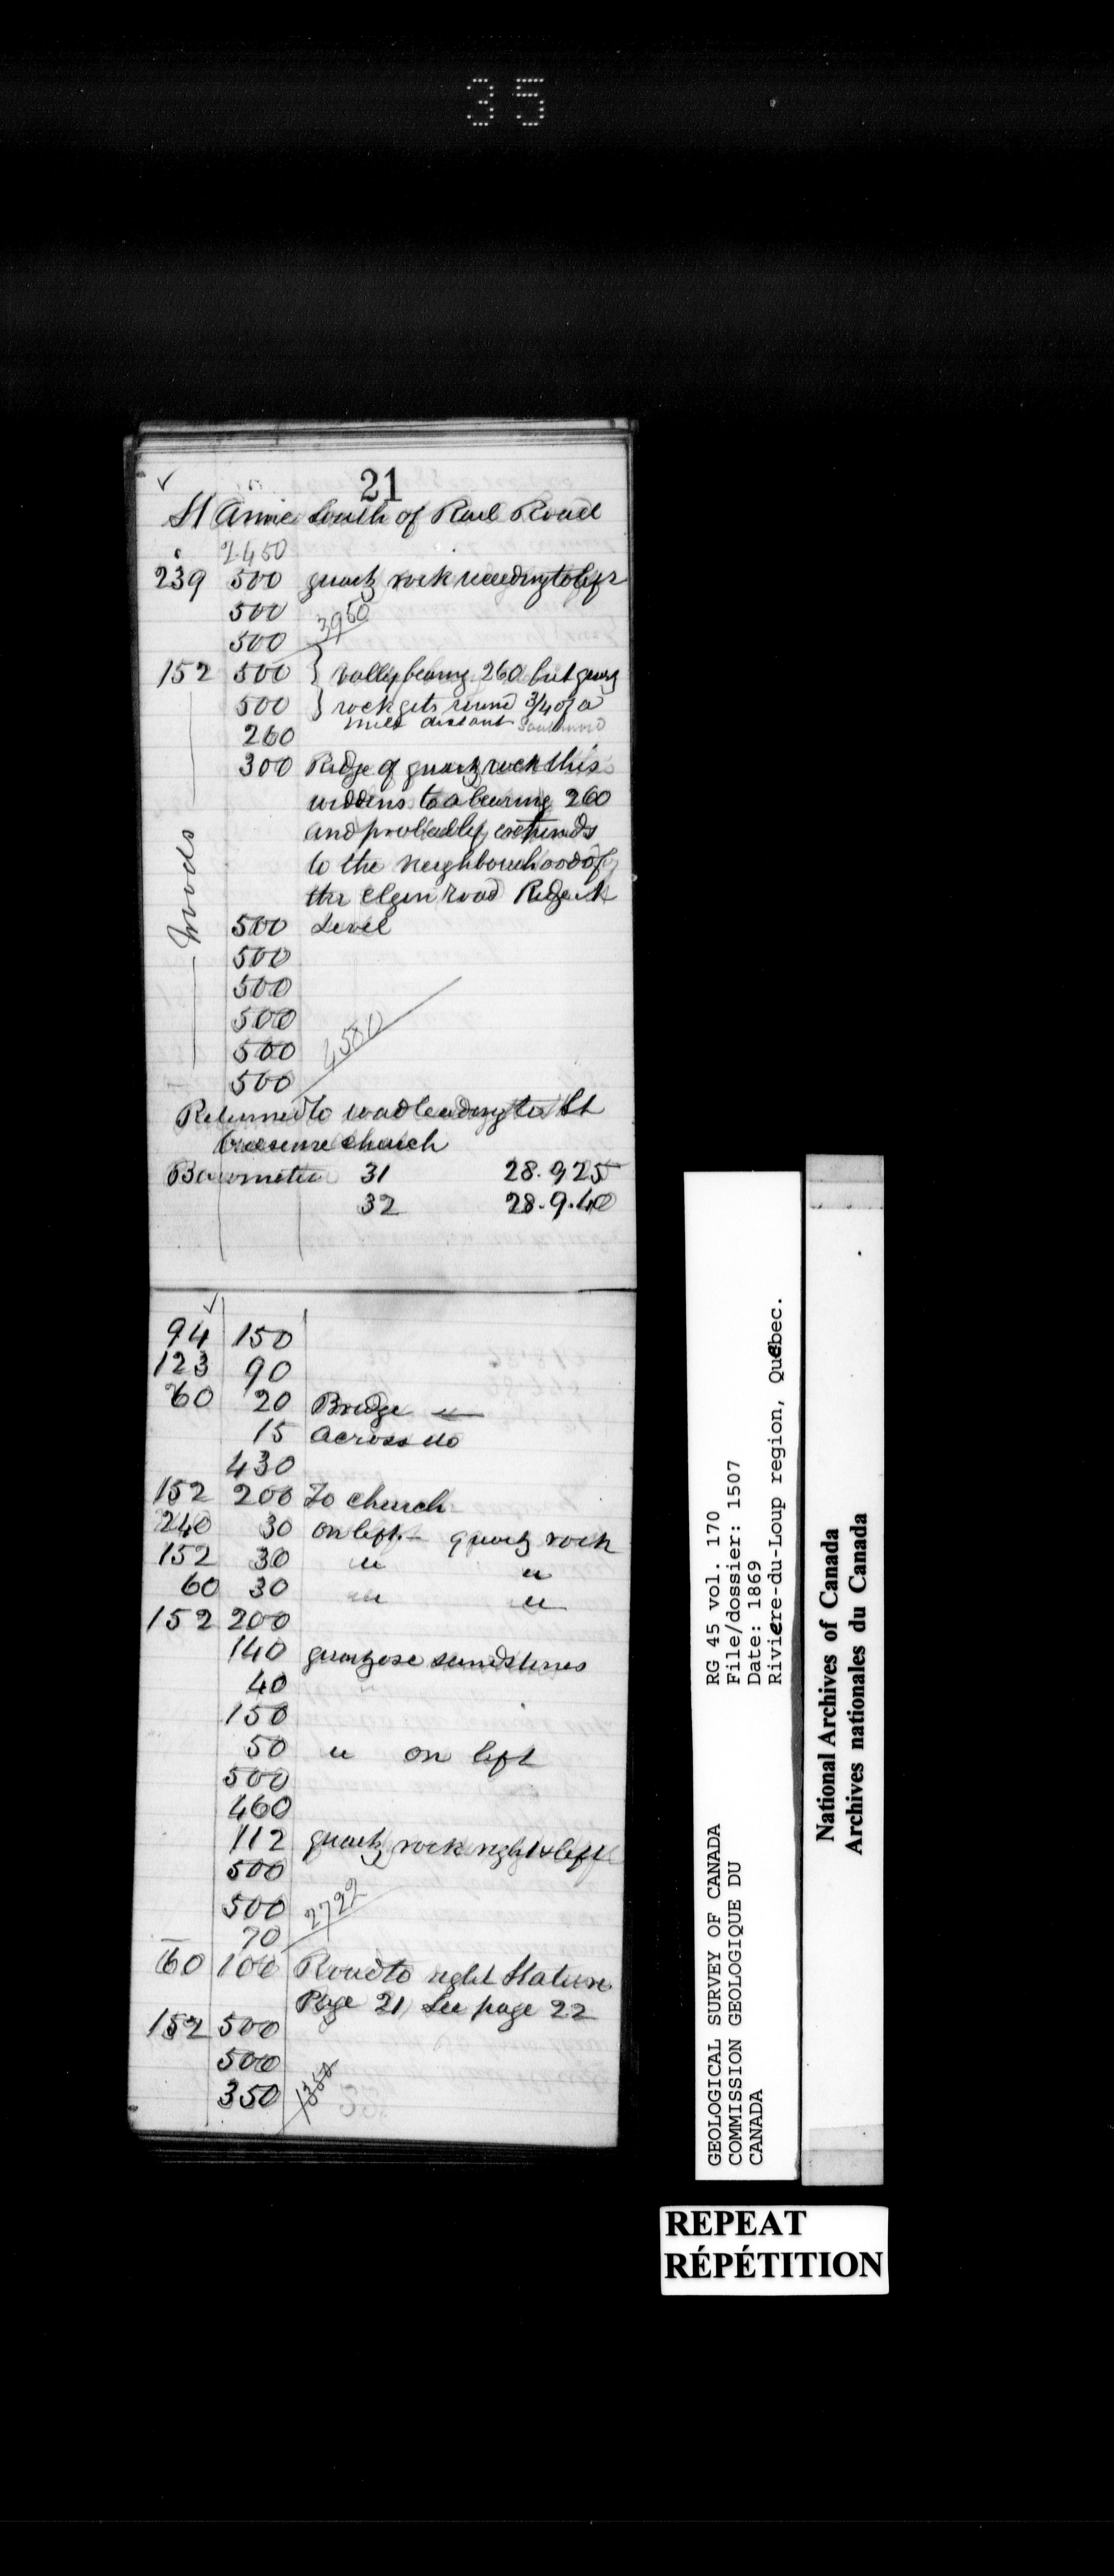 35
21
St Anne South of Rail Road
2450
239 500 quartz rock receding to left
500 3950
500
152 500 } vally bearing 260 but quartz
500 } rock gets round 3/4 of a
mile distant Southward
260
300 Ridge of quartz rock this
widdens to a bearing 260
and probably extends
to the neighbourhood of
the Elgin road Ridge
Woods
500 Level
500
500
500
500 4580
500
Returned to road leading to St
church
Barometer 31 28.925
32 28.9.40
94 150
123 90
60 20 Bridge
15 across do
430
152 200 To church
240 30 on left - quartz rock
152 30 " "
60 30 " "
152 200
140 quartzose sandstones
40 "
150
50 " on left
500
460
112 quartz rock right & left
500
500 2722
70
60 100 Road to right Station
Page 21 See page 22
152 500
500
350 1350
GEOLOGICAL SURVEY OF CANADA
COMMISSION GEOLOGIQUE DU
CANADA
RG 45 vol. 170
File/dossier: 1507
Date: 1869
Rivière-du-Loup region, Québec.
National Archives of Canada
Archives nationales du Canada
REPEAT
RÉPÉTITION